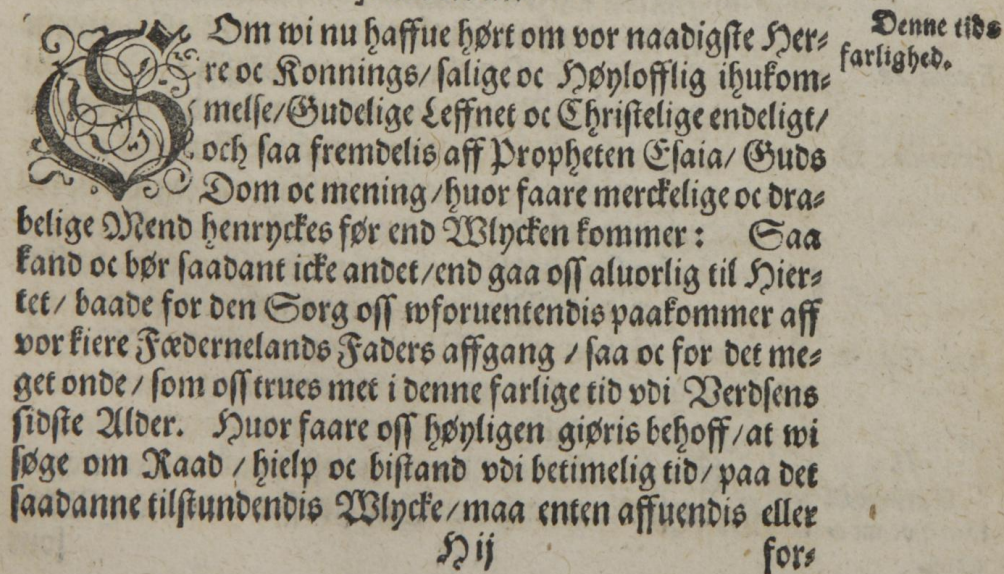 SOm wi nu haffue hørt om vor naadigste Her⸗
re oc Konnings/ salige oc Høylofflig ihukom⸗
melse/Gudelige Leffnet oc Christelige endeligt/
och saa fremdelis aff Propheten Esaia/ Guds
Dom oc mening/huor faare merckelige oc dra⸗
belige Mend henryckes før end Wlycken kommer: Saa
kand oc bør saadant icke andet/end gaa oss aluorlig til Hier⸗
tet/ baade for den Sorg oss wforuentendis paakommer aff
vor kiere Fædernelands Faders affgang / saa oc for det me⸗
get onde/ som oss trues met i denne farlige tid vdi Verdsens
sidste Alder. Huor faare oss høyligen giøris behoff/at wi
søge om Raad / hielp oc bistand vdi betimelig tid/ paa det
saadanne tilstundendis Wlycke/maa enten affuendis eller
H ij for⸗
Denne tids
farlighed.